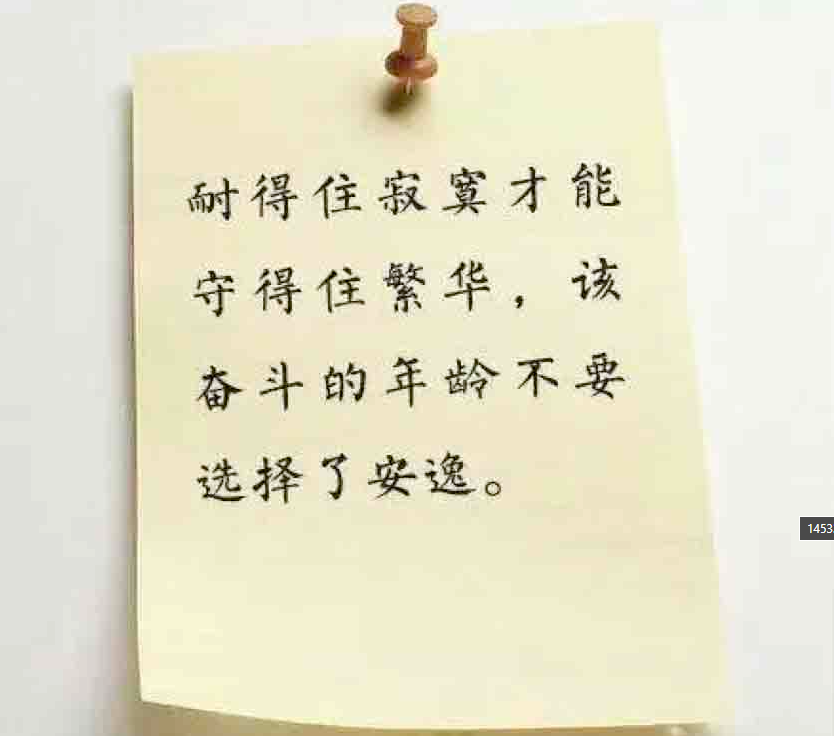 耐得住寂寞才能
守得住繁华，该
奋斗的年龄不要
选择了安逸。
1453